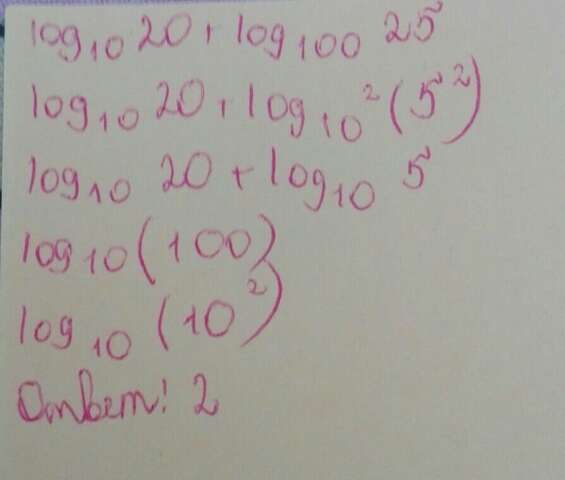 log₁₀ 20 + log₁₀₀ 25
log₁₀ 20 + log₁₀² (5²)
log₁₀ 20 + log₁₀ 5
log₁₀ (100)
log₁₀ (10²)
Ответ: 2